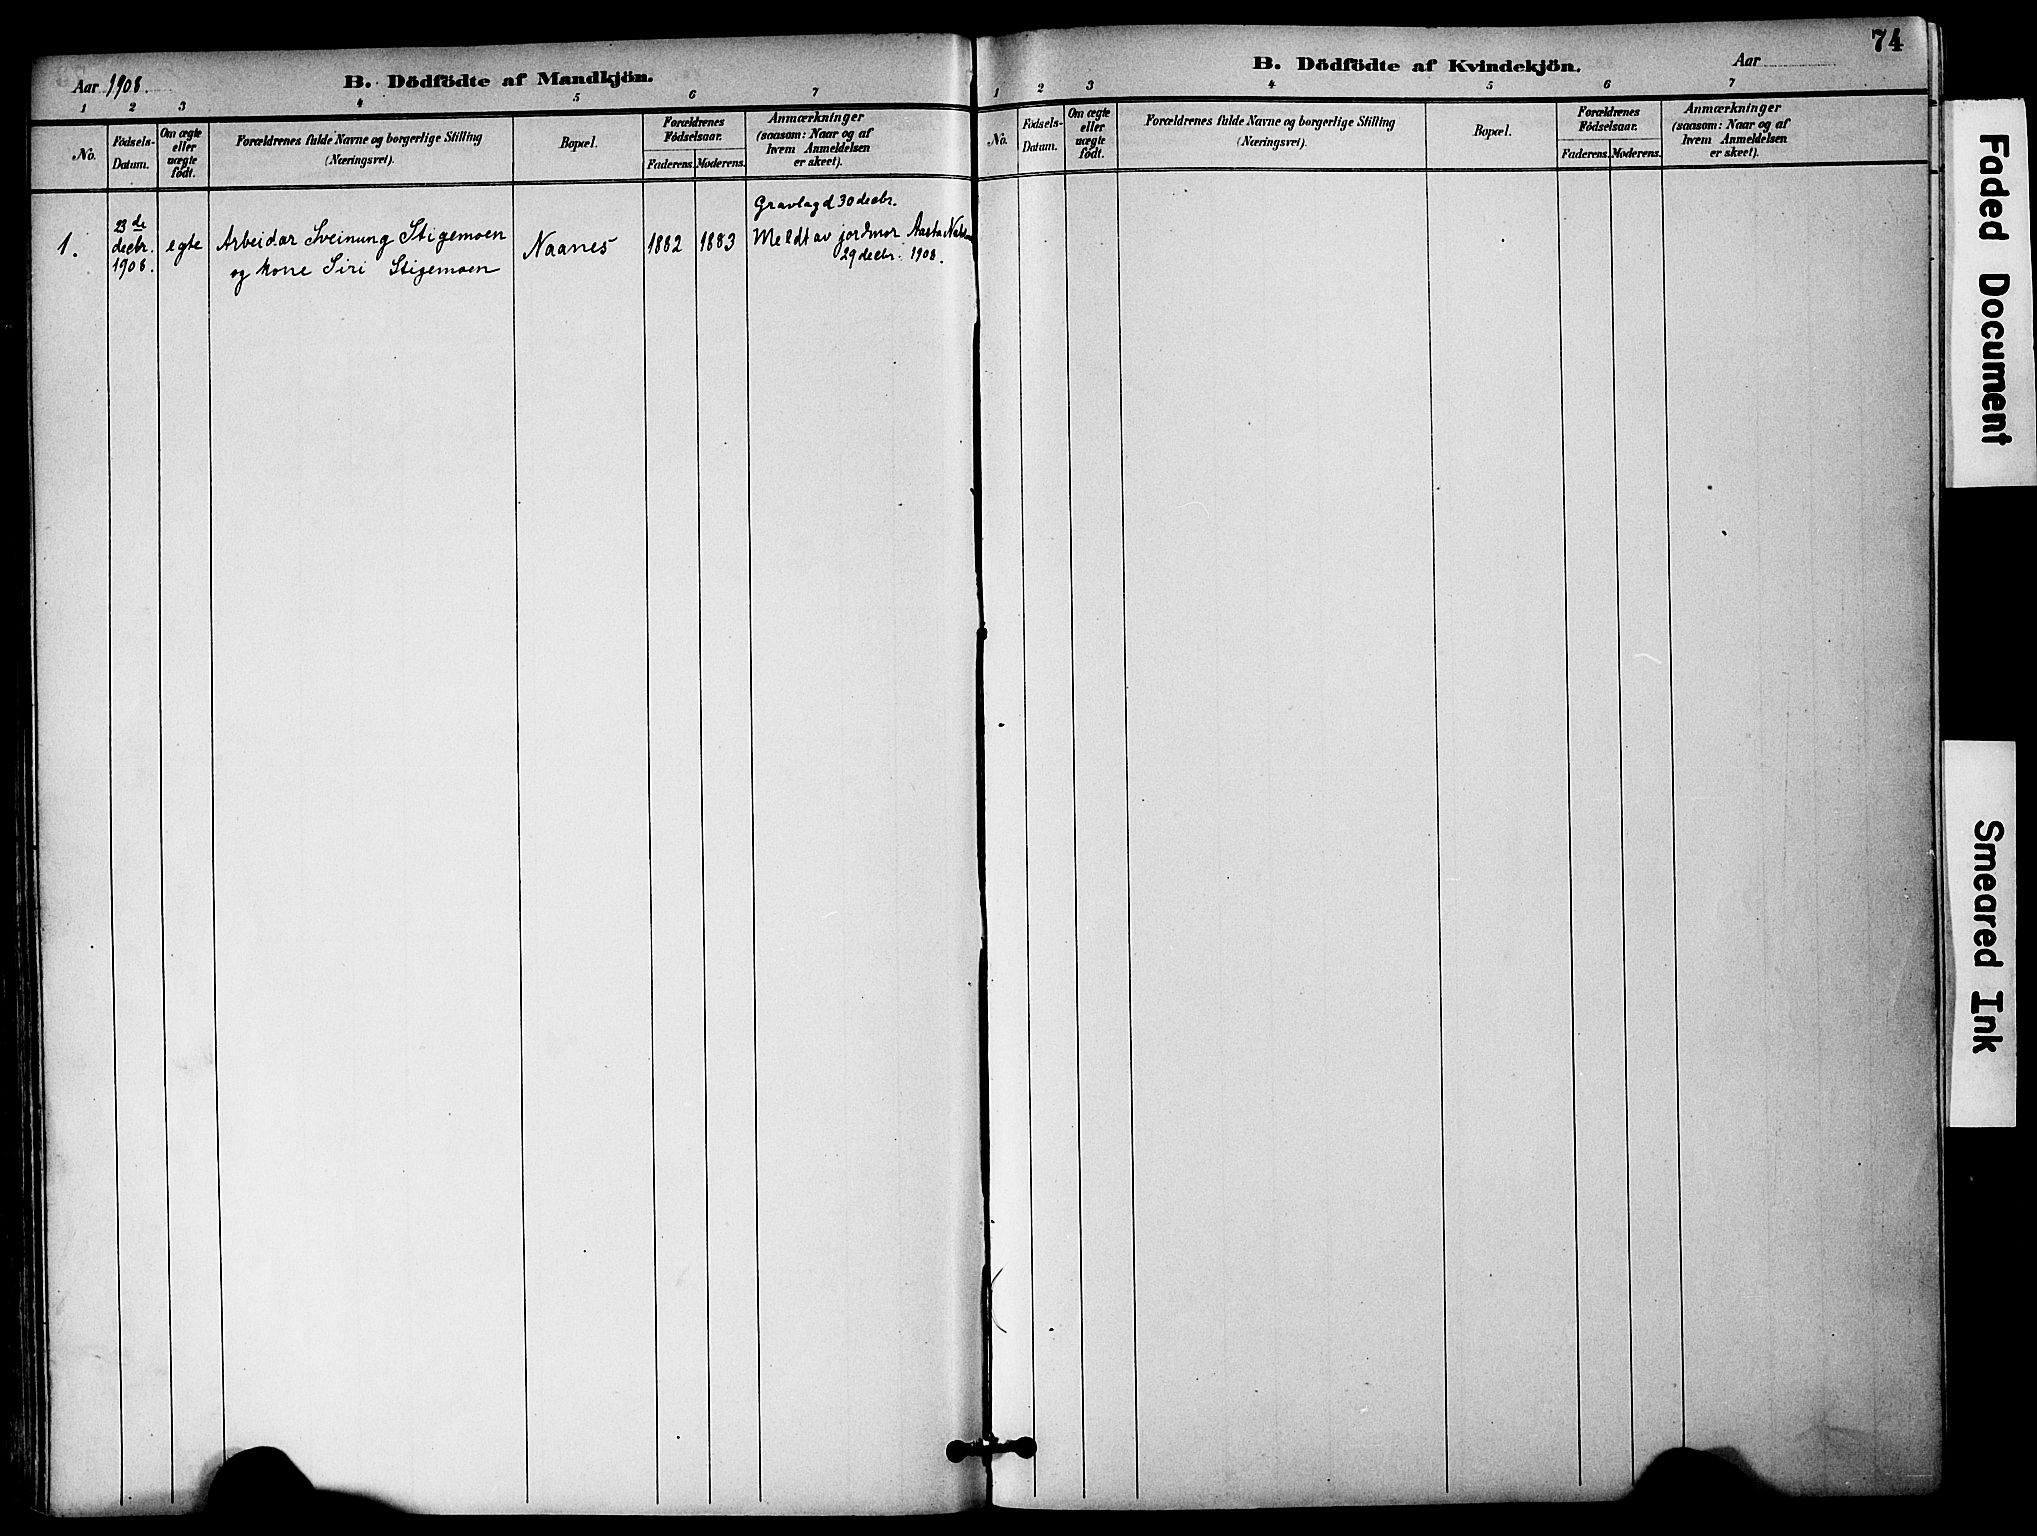 Aar 1908.
B. Dödfödte af Mandkjön.
1 2 3 4 5 6 7
No.
Födsels-
Datum.
Om ægte
eller
uægte
födt.
Forældrenes fulde Navne og borgerlige Stilling
(Næringsvei).
Bopæl.
Forældrenes
Födselsaar.
Faderens. Moderens.
Anmærkninger
(saasom: Naar og af
hvem Anmeldelsen
er skeet).
1.
23de
decbr.
1908.
egte
Arbeidar Sveinung Stigemoen
og kone Siri Stigemoen
Naanes
1882 1883
Gravlagd 30 decbr.
Meldt av jordmor Aasta
29 decbr. 1908.
74
B. Dödfödte af Kvindekjön.
Aar
1 2 3 4 5 6 7
No.
Födsels-
Datum.
Om ægte
eller
uægte
födt.
Forældrenes fulde Navne og borgerlige Stilling
(Næringsvei).
Bopæl.
Forældrenes
Födselsaar.
Faderens. Moderens.
Anmærkninger
(saasom: Naar og af
hvem Anmeldelsen
er skeet).
Faded Document
Smeared Ink